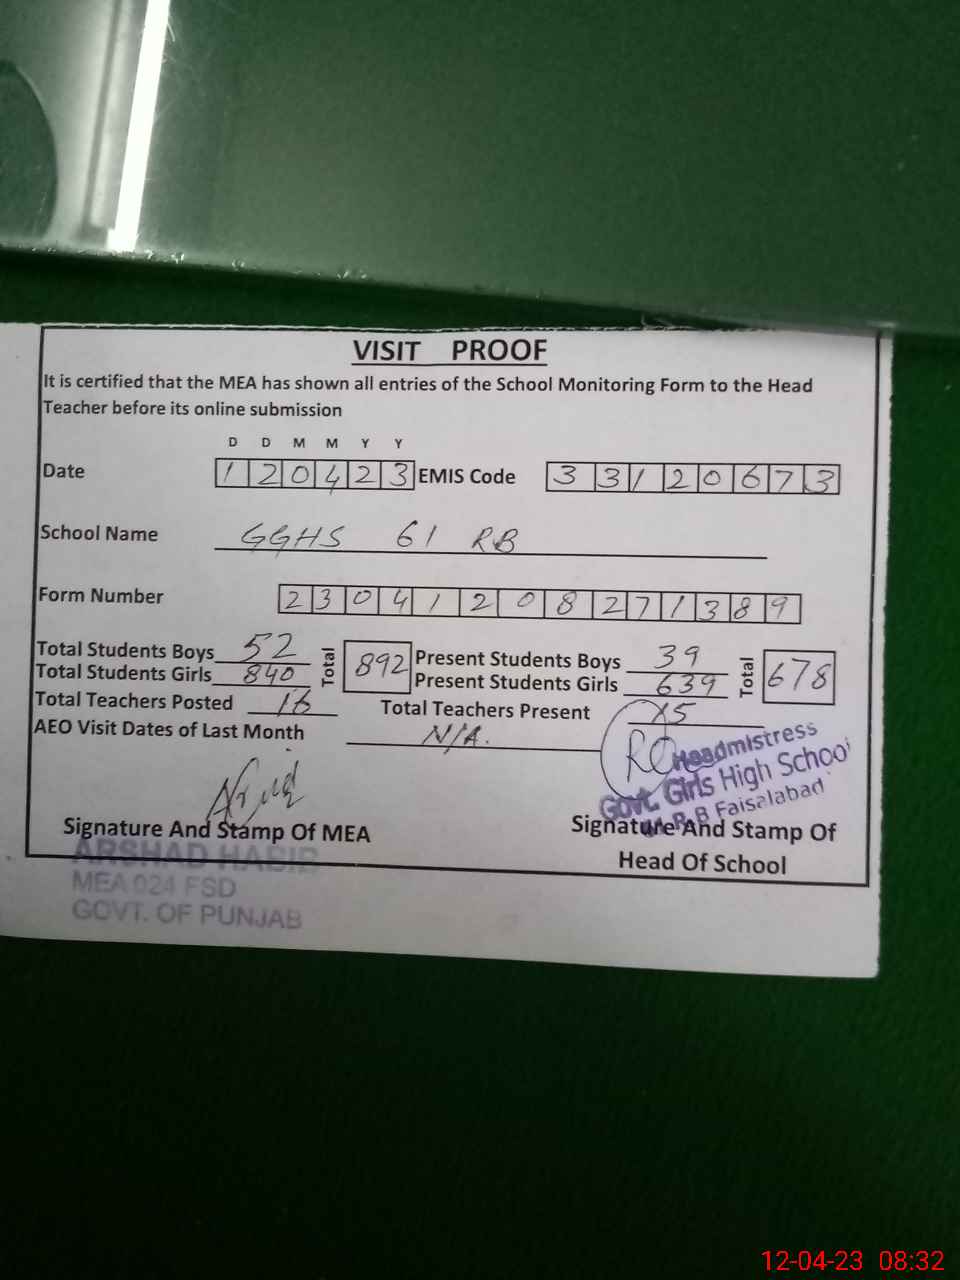 VISIT PROOF
It is certified that the MEA has shown all entries of the School Monitoring Form to the Head
Teacher before its online submission
D D M M Y Y
Date 1 2 0 4 2 3 EMIS Code 3 3 1 2 0 6 7 3
School Name GGHS 61 RB
Form Number 2 3 0 4 1 2 0 8 2 7 1 3 8 9
Total Students Boys 52 Total 892 Present Students Boys 39 Total 678
Total Students Girls 840 Present Students Girls 639
Total Teachers Posted 16 Total Teachers Present 15
AEO Visit Dates of Last Month N/A.
Headmistress
Govt. Girls High School
R.B Faisalabad
Signature And Stamp Of MEA Signature And Stamp Of
Head Of School
ARSHAD HABIB
MEA 024 FSD
GOVT. OF PUNJAB
12-04-23 08:32